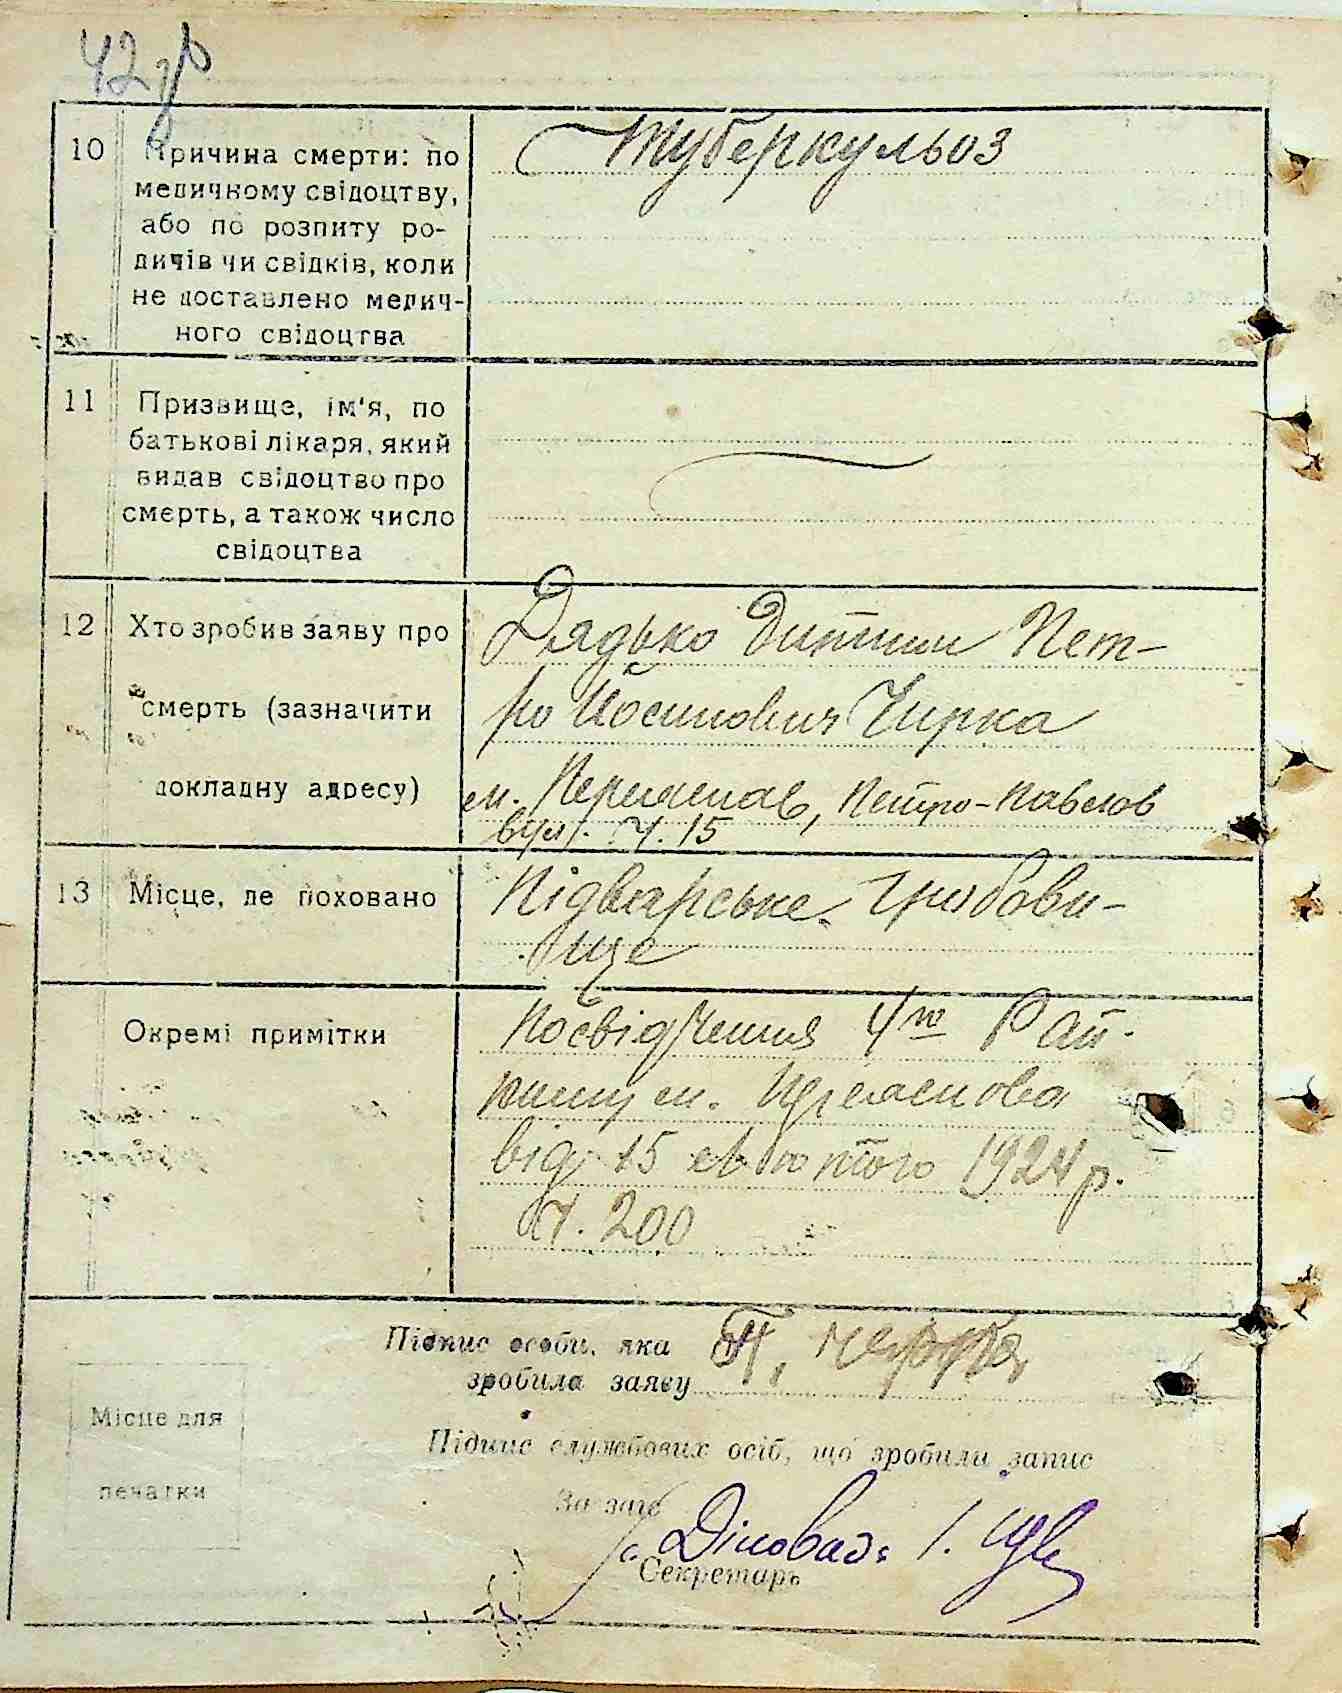 42
10 Причина смерти: по
медичному свідоцтву,
або по розпиту ро-
дичів чи свідків, коли
не доставлено медич-
ного свідоцтва
Туберкульоз
11 Призвище, ім'я, по
батькові лікаря, який
видав свідоцтво про
смерть, а також число
свідоцтва
12 Хто зробив заяву про
смерть (зазначити
докладну адресу)
Дядько дитини Пет-
ро Йосипович Чирка
м. Переяслав, Петро-Павлов
вул. ч. 15
13 Місце, де поховано
Підварське грибови-
ще
Окремі примітки
Посвідчення 4го Рай-
м. Переяслова
від 15 лютого 1924 р.
ч. 200
Підпис особи, яка
зробила заяву
П.
Підпис службових осіб, що зробили запис
За заг
Діловод: І.
Секретарь
Місце для
печатки